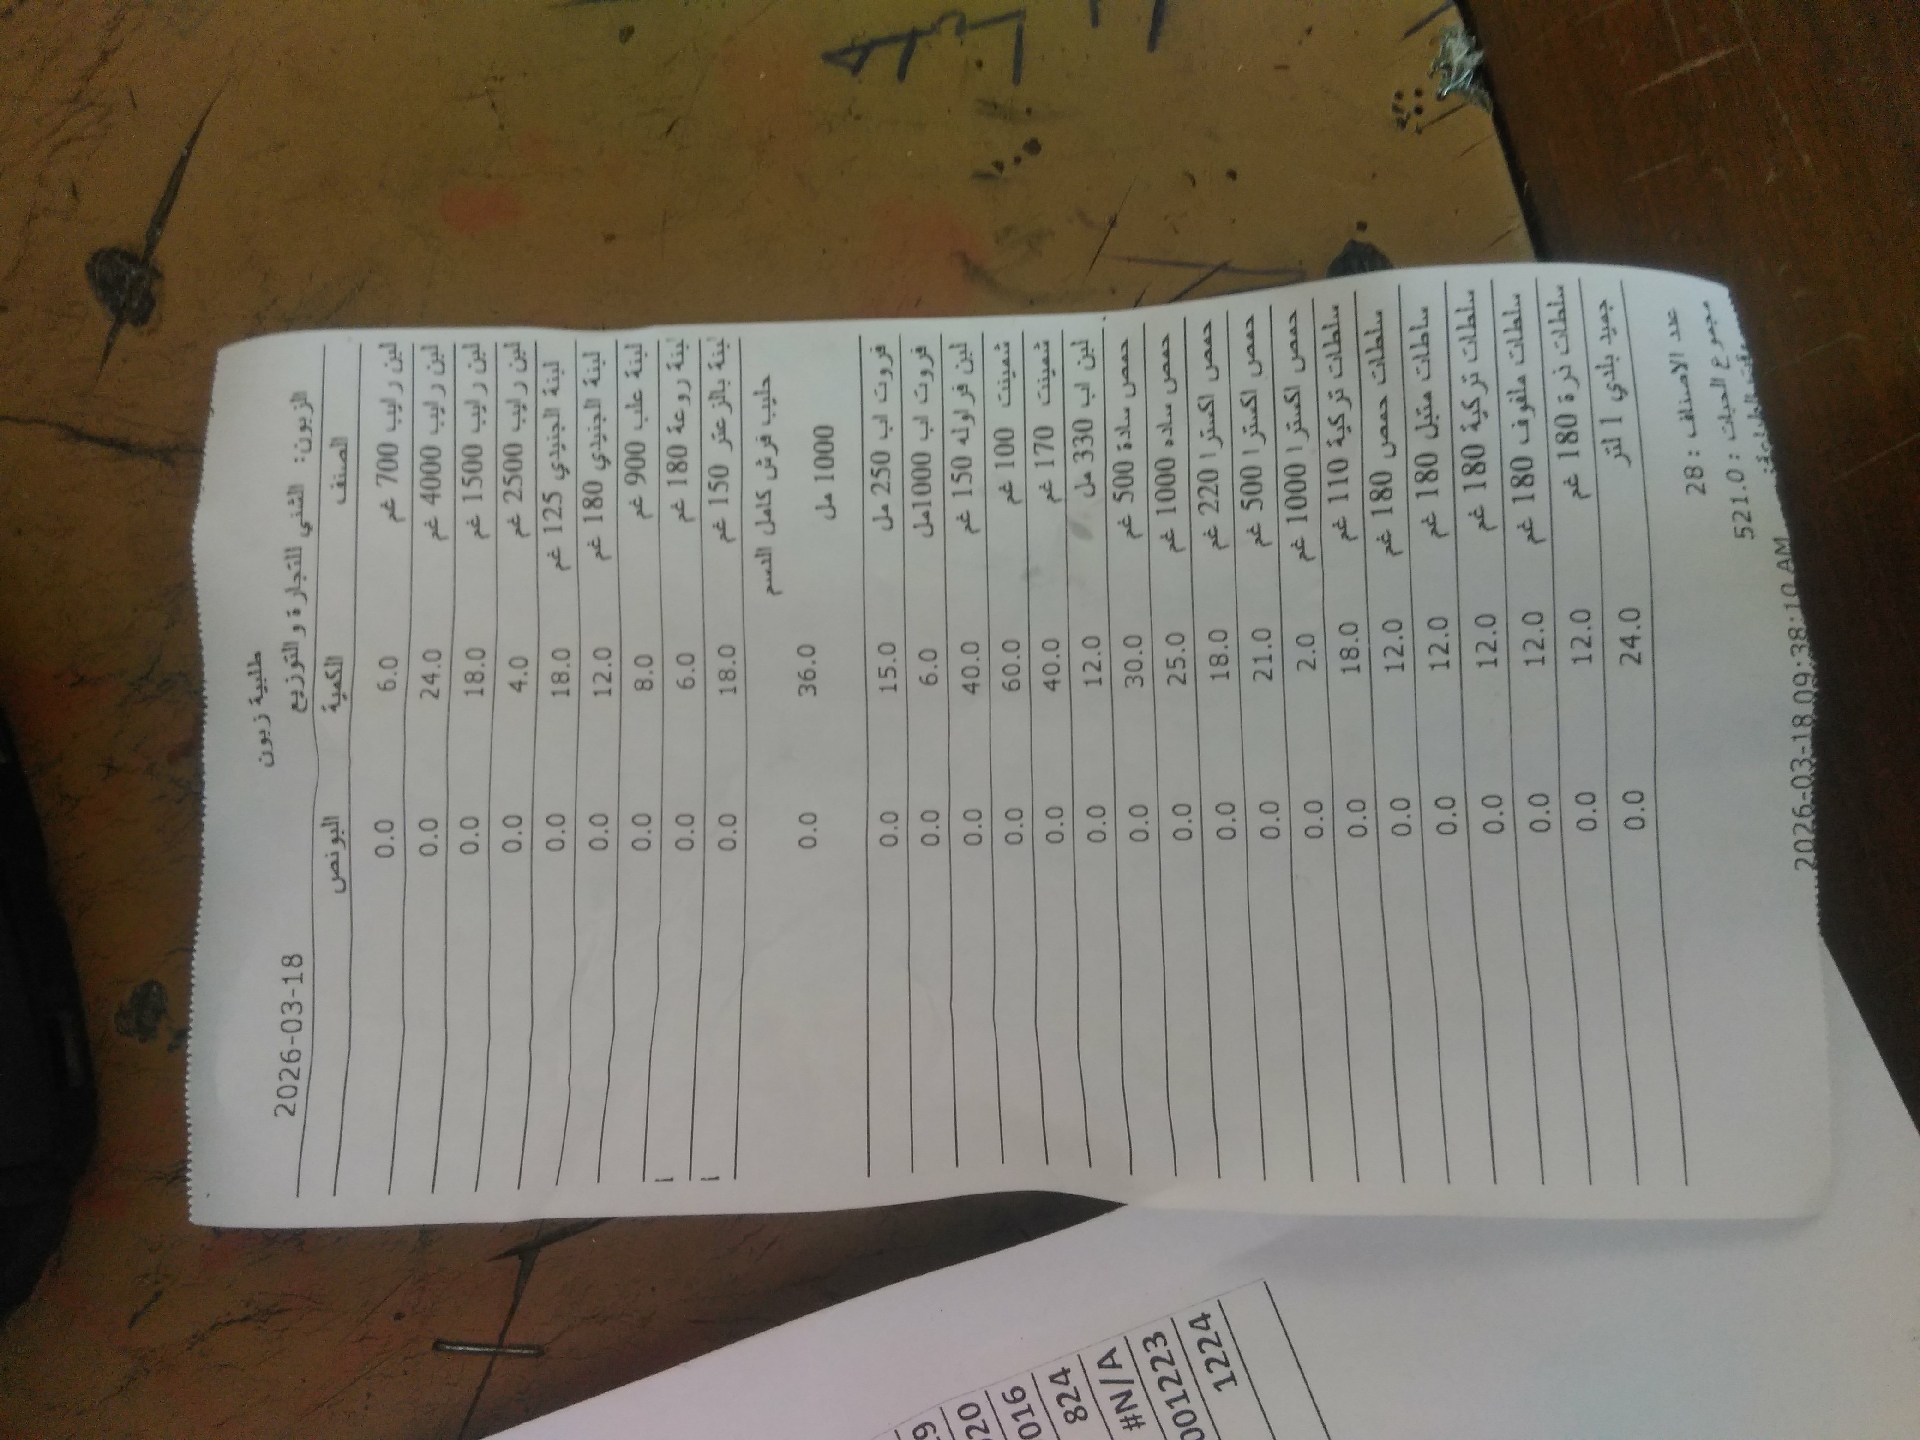 طلبية زبون
الزبون: الشني للتجارة و التوزيع 2026-03-18
الصنف الكمية البونص
لبن رايب 700 غم 6.0 0.0
لبن رايب 4000 غم 24.0 0.0
لبن رايب 1500 غم 18.0 0.0
لبن رايب 2500 غم 4.0 0.0
لبنة الجنيدي 125 غم 18.0 0.0
لبنة الجنيدي 180 غم 12.0 0.0
لبنة علب 900 غم 8.0 0.0
لبنة روعة 180 غم 6.0 0.0
لبنة بالزعتر 150 غم 18.0 0.0
حليب فرش كامل الدسم
1000 مل 36.0 0.0
فروت اب 250 مل 15.0 0.0
فروت اب 1000مل 6.0 0.0
لبن فراوله 150 غم 40.0 0.0
شمينت 100 غم 60.0 0.0
شمينت 170 غم 40.0 0.0
لبن اب 330 مل 12.0 0.0
حمص سادة 500 غم 30.0 0.0
حمص ساده 1000 غم 25.0 0.0
حمص اكسترا 220 غم 18.0 0.0
حمص اكسترا 500 غم 21.0 0.0
حمص اكسترا 1000 غم 2.0 0.0
سلطات تركية 110 غم 18.0 0.0
سلطات حمص 180 غم 12.0 0.0
سلطات متبل 180 غم 12.0 0.0
سلطات تركية 180 غم 12.0 0.0
سلطات ملفوف 180 غم 12.0 0.0
سلطات ذرة 180 غم 12.0 0.0
جميد بلدي 1 لتر 24.0 0.0
عدد الاصناف : 28
مجموع الحبات : 521.0
2026-03-18 09:38:10 AM
20
016
824
#N/A
001223
1224